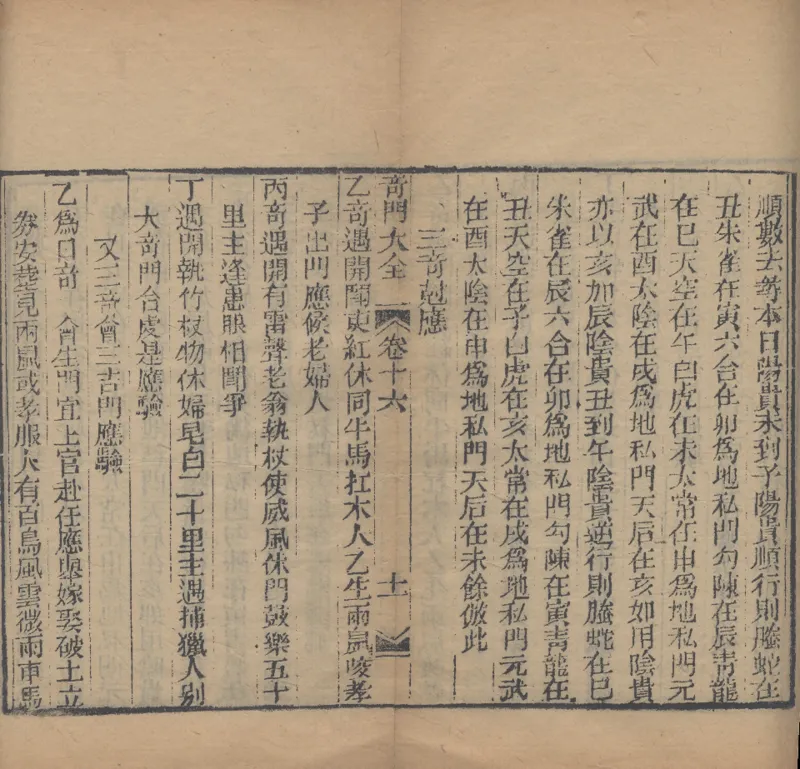 順數去每本日陽貴未到子陽貴順行則螣蛇在
丑朱雀在寅六合在卯為地私門勾陳在辰青龍
在巳天空在午白虎在未太常在申為地私門元
武在酉太陰在戌為地私門天后在亥如用陰貴
亦以亥加辰陰貴丑到午陰貴逆行則螣蛇在巳
朱雀在辰六合在卯為地私門勾陳在寅青龍在
丑天空在子白虎在亥太常在戌為地私門元武
在酉太陰在申為地私門天后在未餘倣此
三奇尅應
奇門大全 卷十六 十一
乙奇遇開閗吏紅休同牛馬扛木人乙生一兩鼠咬孝
子出門應候老婦人
丙奇遇開有雷聲老翁執杖使威風休門鼓樂五十
里主逢患眼相鬭爭
丁遇開執竹杖物休婦皂白二十里主遇捕獵人別
大奇門合處是應驗
又三奇會三吉門應驗
乙為日奇 會生門宜上官赴任應舉嫁娶破土立
券安葬見兩鼠或孝服人有百鳥風雲微雨車馬